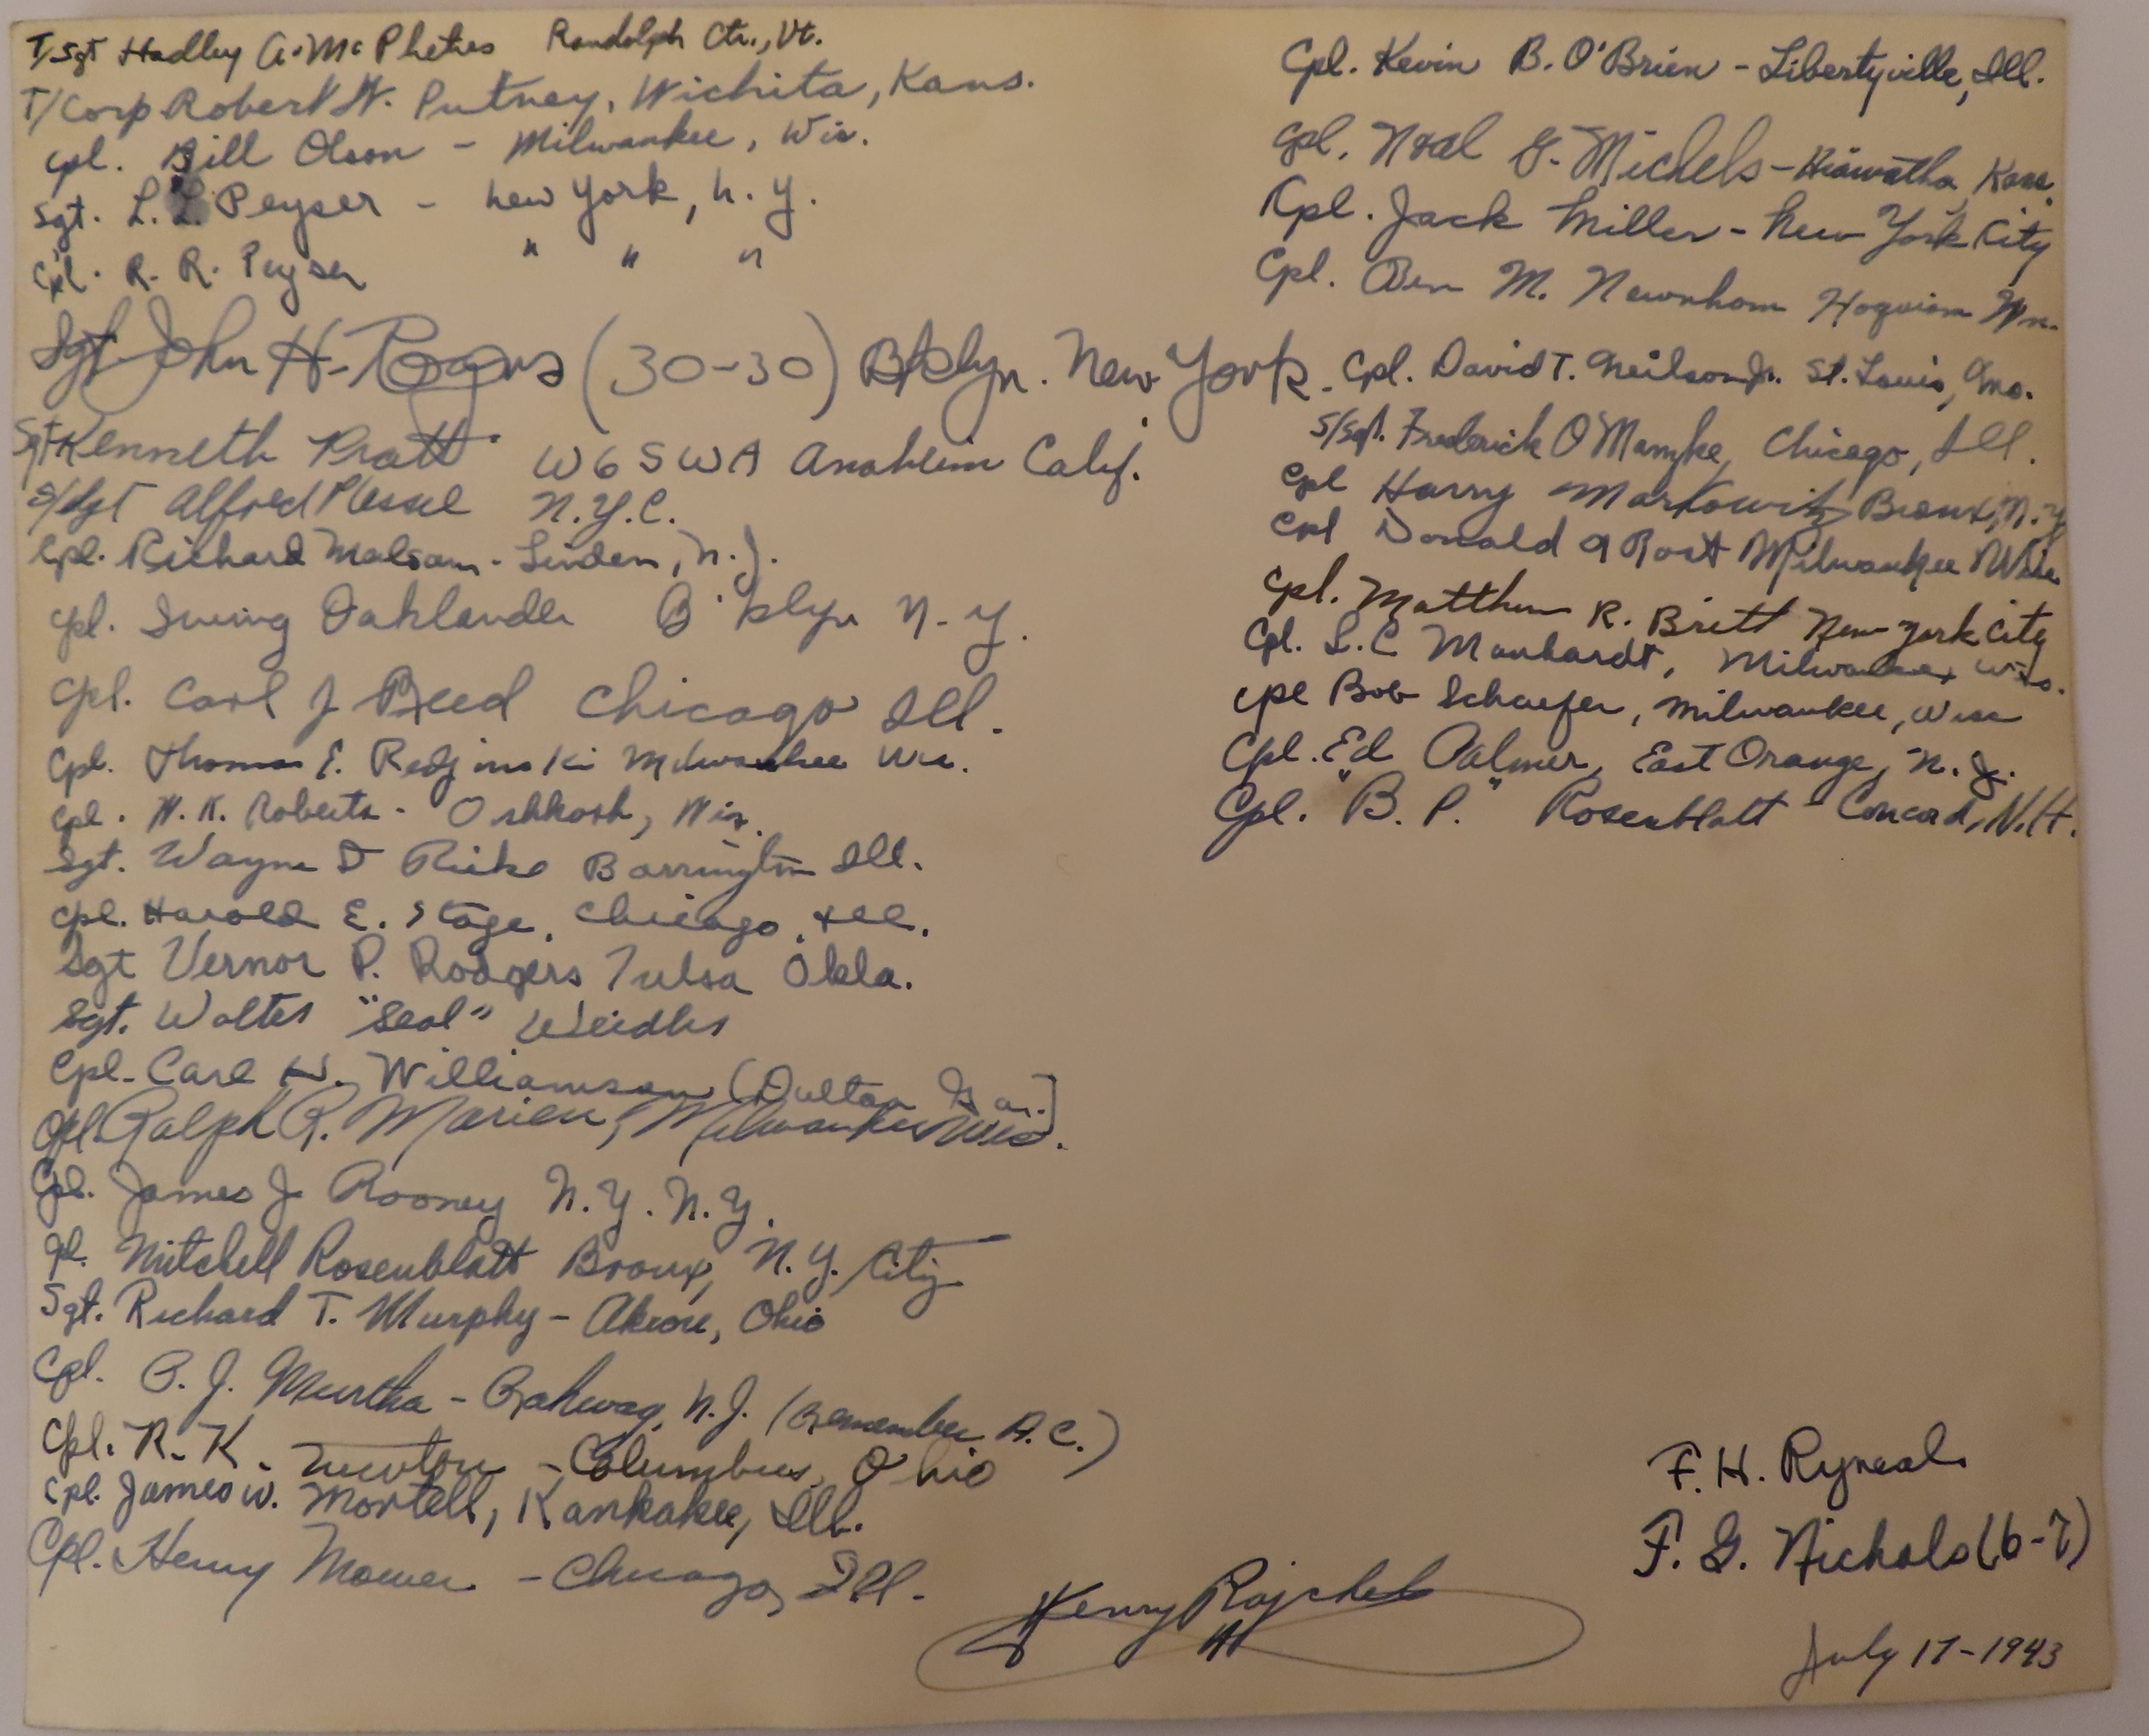 T/Sgt Hadley A. McPhetres Randolph Ctr., Vt.
T/Corp Robert W. Putney, Wichita, Kans.
Cpl. Bill Olson - Milwaukee, Wis.
Sgt. L. L. Peyser - New York, N.Y.
Cpl. R. R. Peyser " " "
Sgt. John H. Rogers (30-30) Bklyn. New York
Sgt Kenneth Pratt W6SWA Anaheim Calif.
S/Sgt Alfred Plessel N.Y.C.
Cpl. Richard Malsam - Linden, N.J.
Cpl. Irving Oaklander B'klyn N.Y.
Cpl. Carl J Reed Chicago Ill.
Cpl. Thomas E. Redjinski Milwaukee Wis.
Cpl. W. K. Roberts - Oshkosh, Wis.
Sgt. Wayne D Rieke Barrington Ill.
Cpl. Harold E. Stage, Chicago, Ill.
Sgt Vernor P. Rodgers Tulsa Okla.
Sgt. Walter "Seal" Weidler
Cpl. Carl W. Williamson (Dalton Ga.)
Cpl. Ralph R. Marien, Milwaukee Wis.
Cpl. James J. Rooney N.Y. N.Y.
Cpl. Mitchell Rosenblatt Bronx, N.Y. City
Sgt. Richard T. Murphy - Akron, Ohio
Cpl. P. J. Murtha - Rahway, N.J. (Remember A.C.)
Cpl. R. K. Newton - Columbus, Ohio
Cpl. James W. Mortell, Kankakee, Ill.
Cpl. Henry Mower - Chicago, Ill.
Henry Rajchel
Cpl. Kevin B. O'Brien - Libertyville, Ill.
Cpl. Noal G. Michels - Hiawatha, Kans.
Cpl. Jack Miller - New York City
Cpl. Ben M. Newnham Hoquiam Wn.
Cpl. David T. Neilson Jr. St. Louis, Mo.
S/Sgt. Frederick O Manzke, Chicago, Ill.
Cpl Harry Markowitz Bronx, N.Y.
Cpl Donald A Rost Milwaukee Wis.
Cpl. Matthew R. Britt New York City
Cpl. L. C Manhardt, Milwaukee Wis.
Cpl Bob Schaefer, Milwaukee, Wisc
Cpl. Ed Palmer, East Orange, N.J.
Cpl. "B. P." Rosenblatt - Concord, N.H.
F. H. Ryneal
F. G. Nichols (6-7)
July 17-1943